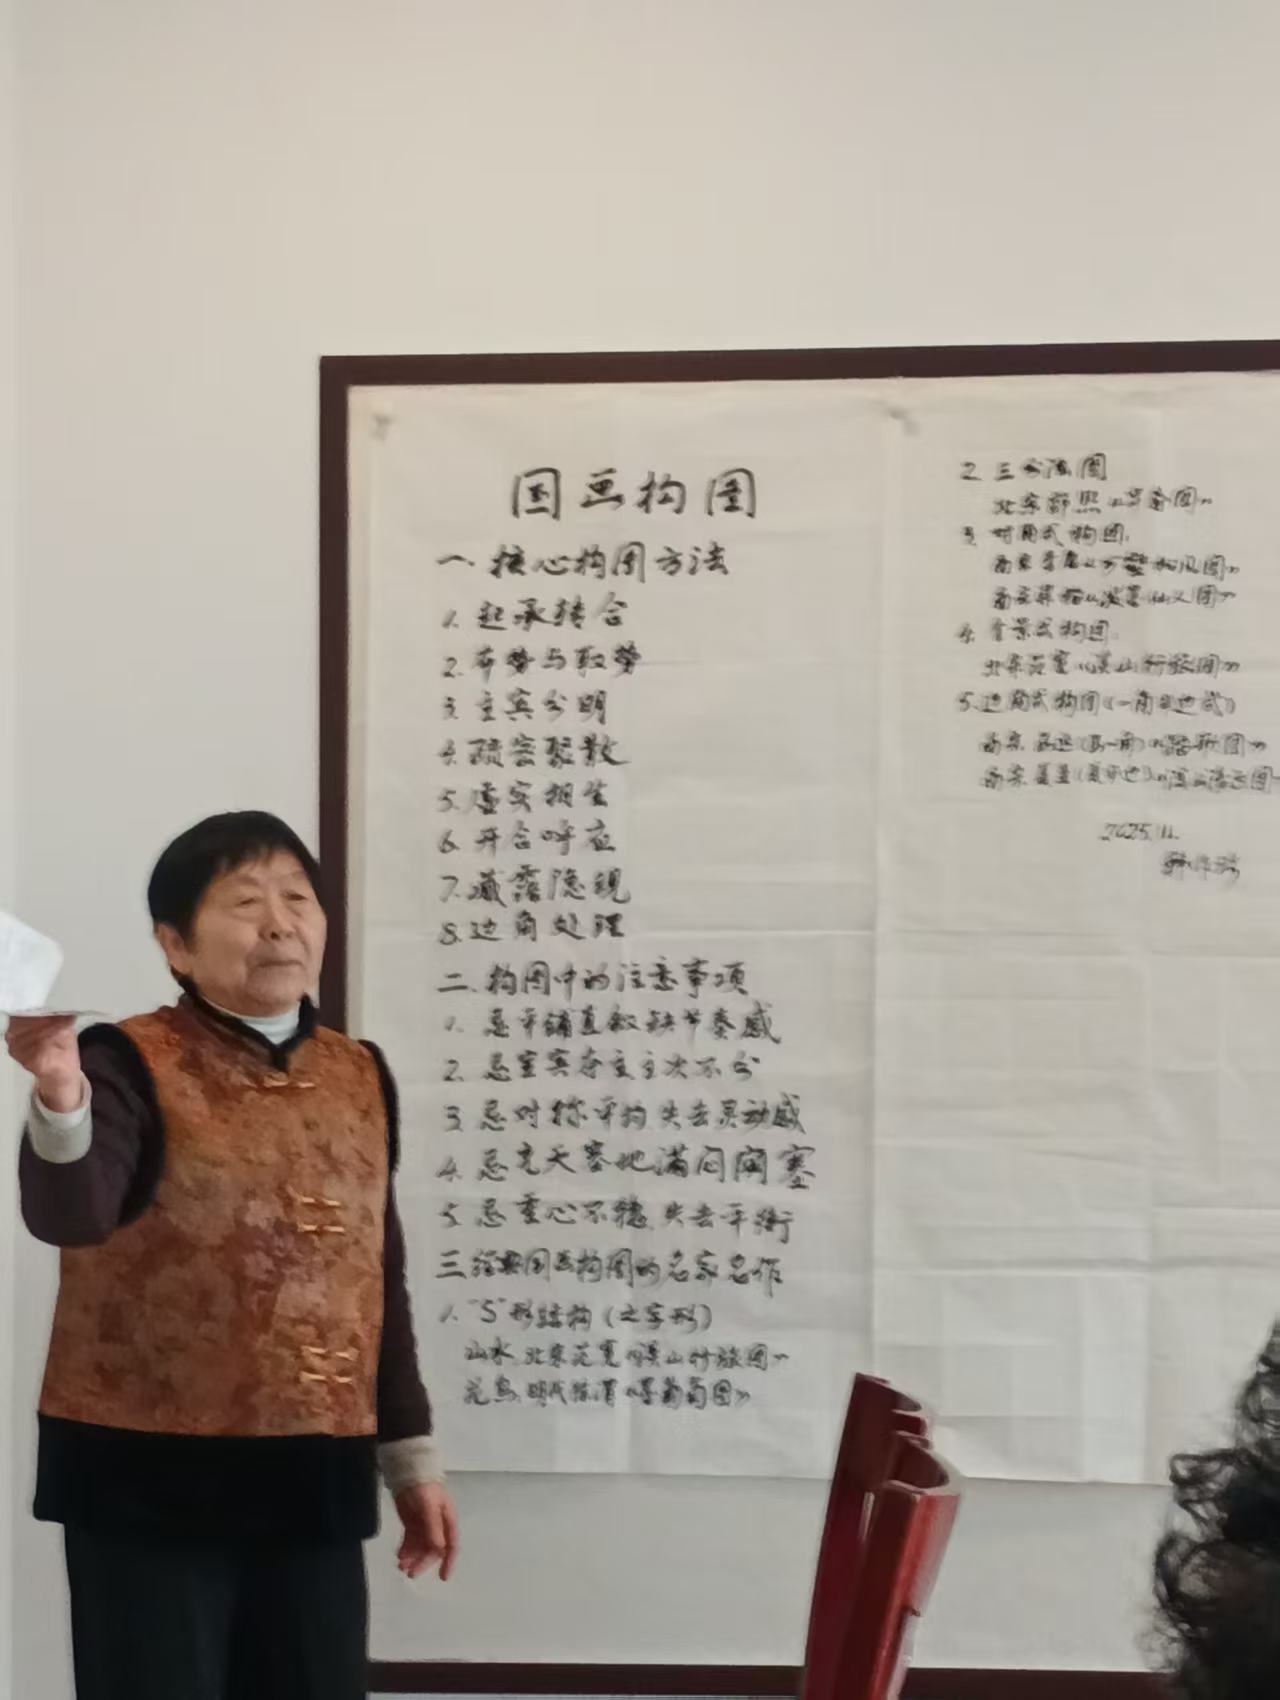 国画构图
一、核心构图方法
1. 起承转合
2. 布势与取势
3. 主宾分明
4. 疏密聚散
5. 虚实相生
6. 开合呼应
7. 藏露隐现
8. 边角处理
二、构图中的注意事项
1. 忌平铺直叙缺节奏感
2. 忌宾夺主主次不分
3. 忌对称平均 失去灵动感
4. 忌充天塞地满闷闭塞
5. 忌重心不稳 失去平衡
三、经典国画构图的名家名作
1. "S"形结构(之字形)
山水 北宋范宽《溪山行旅图》
花鸟 明代徐渭《墨葡萄图》
2 三分法图
北宋郭熙《早春图》
3 对角式构图
南宋李唐《万壑松风图》
南宋梁楷《泼墨仙人图》
4. 全景式构图
北宋范宽《溪山行旅图》
5. 边角式构图(一角半边式)
南宋 马远(马一角)《踏歌图》
南宋 夏圭(夏半边)
2025.11.